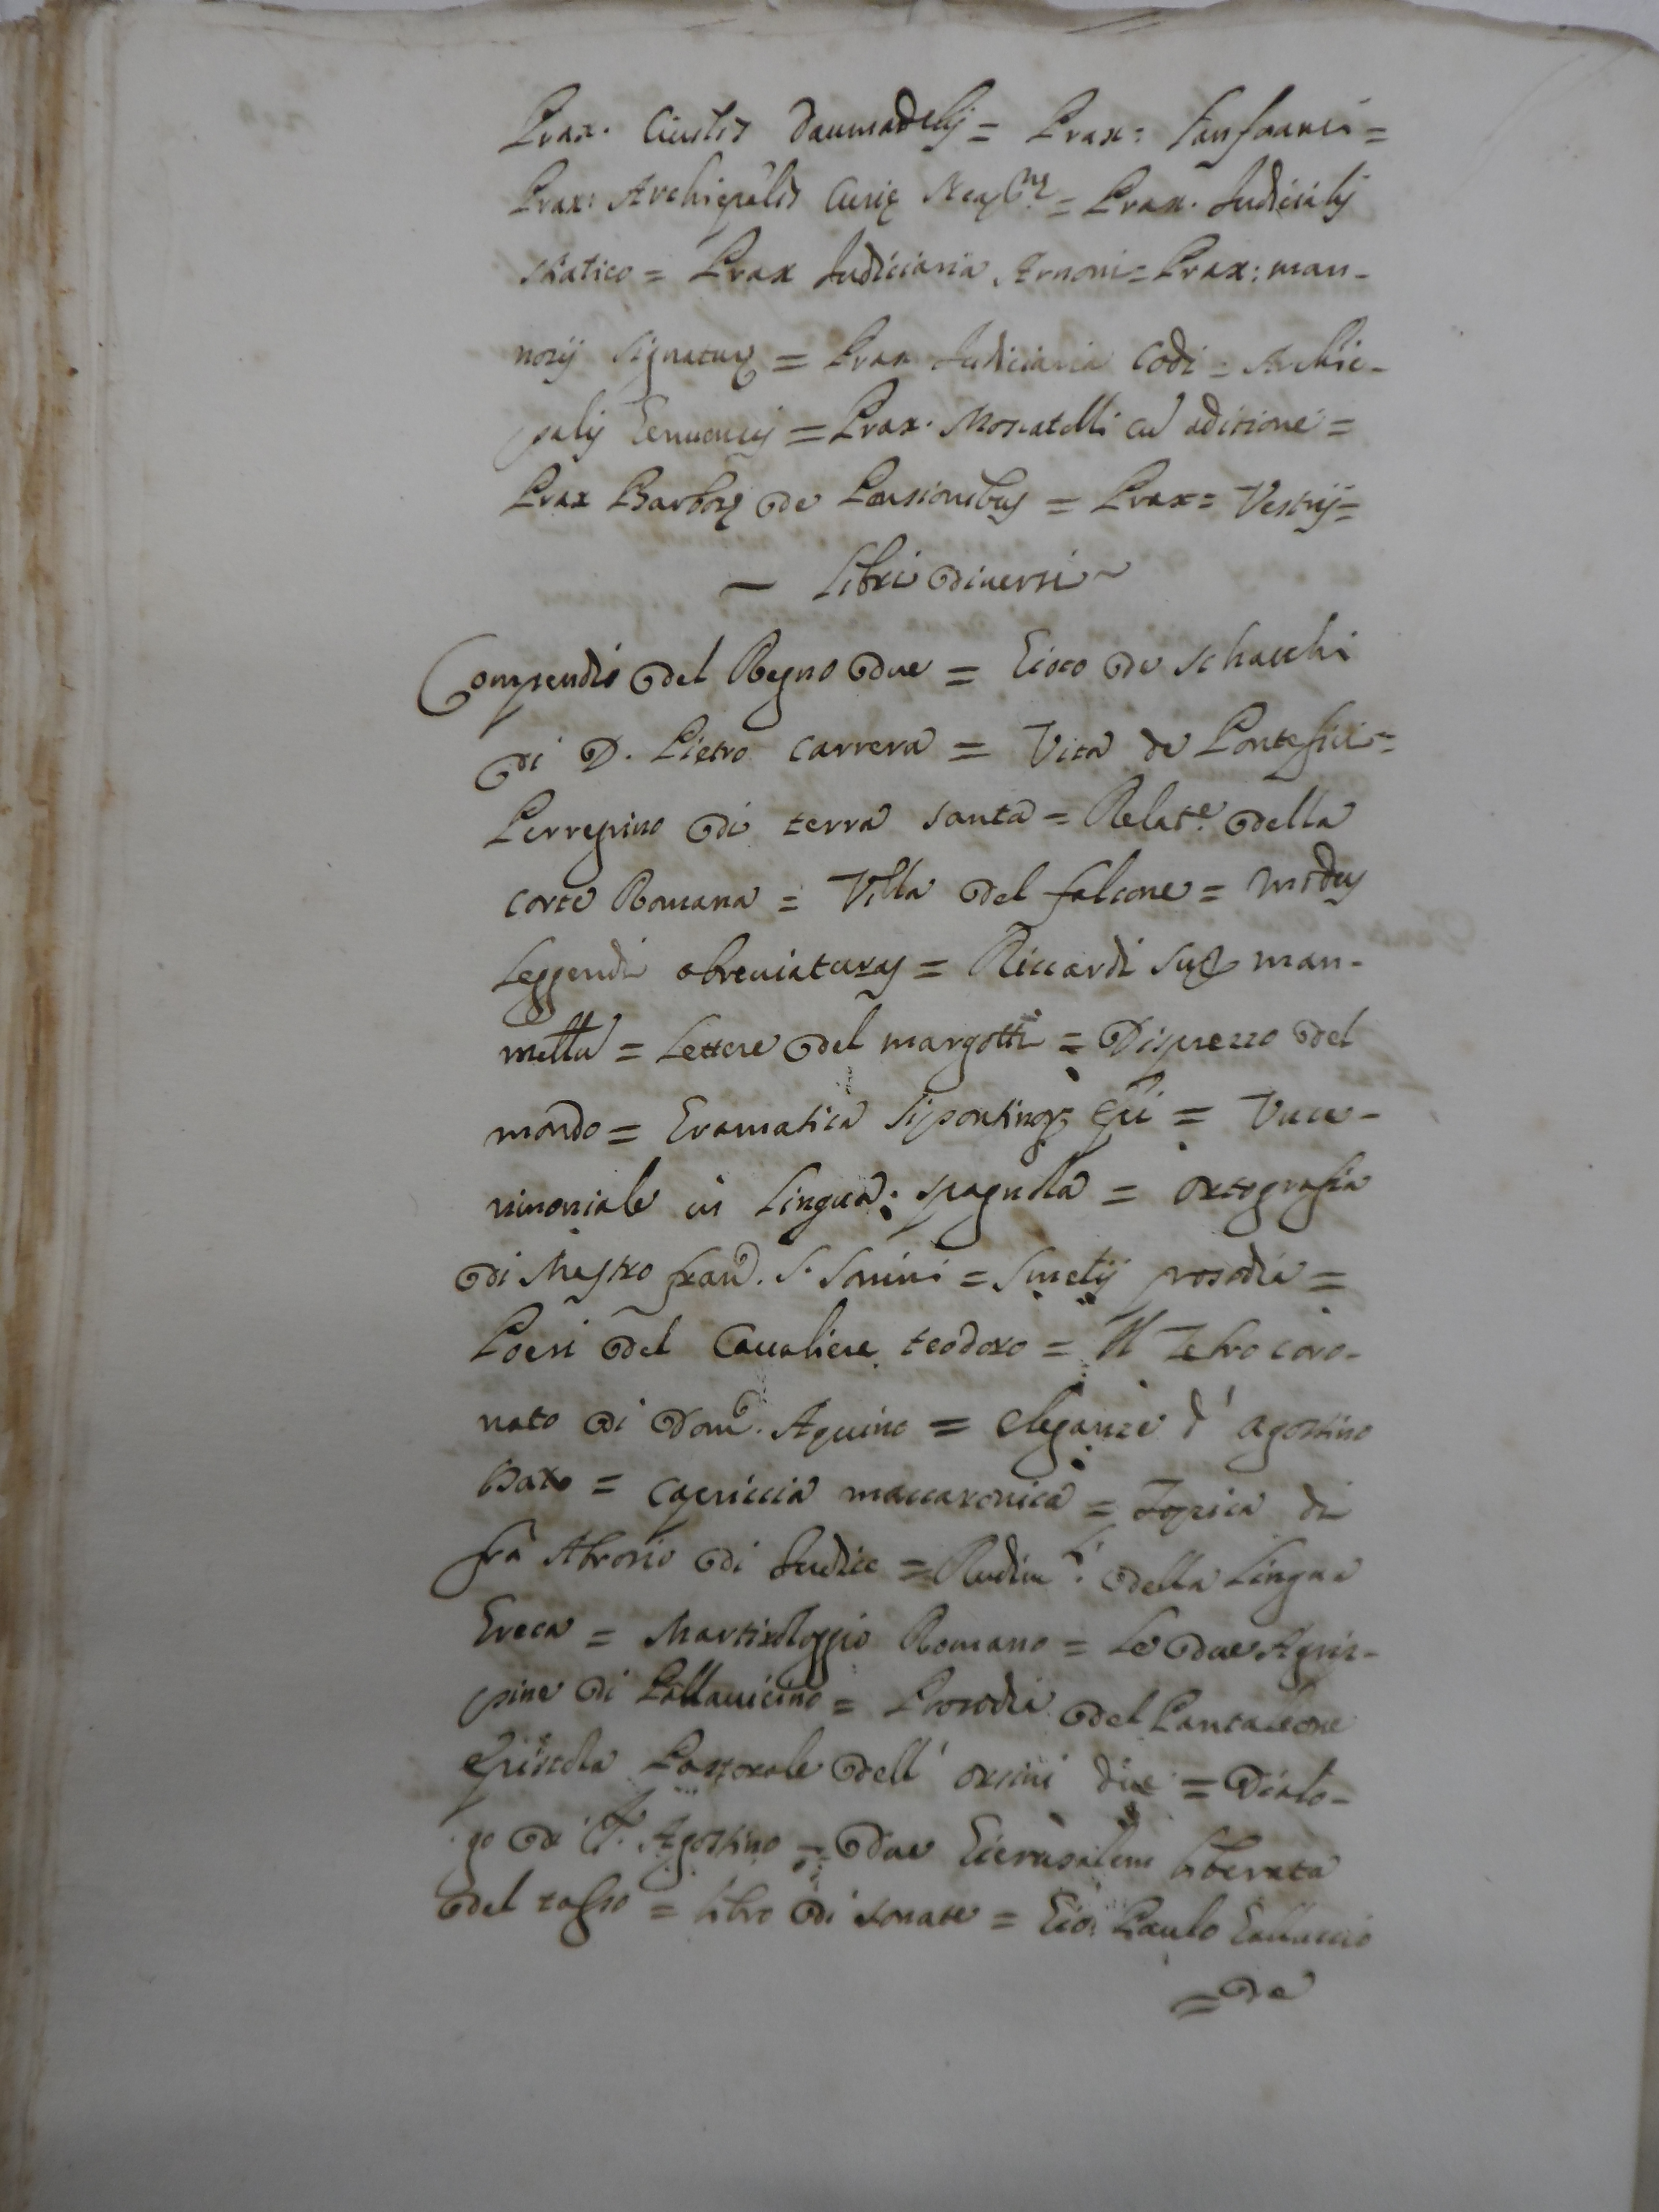 Prax. Ciuilis Daumadelij = Prax: Fanfanarii =
Prax: Archiepalis Curię Neapne = Prax. Judicialis
statico = Prax Judiciaria Arnoni = Prax: man-
norij signaturę = Prax Judiciaria Codi = Archie-
palis Genuensis = Prax. Moscatelli cũ aditione =
Prax Barbosę de Pensionibus = Prax = Vestrij =
~ Libri diuersi ~
Compendio del Regno due = Gioco de schacchi
di D. Pietro Carrera = Vita de Pontefici =
Perregrino di terra santa = Relate della
corte Romana = Villa del falcone = modus
Leggendi abreuiaturas = Riccardi sup man-
mella = Lettere del margotti = Disprezzo del
mondo = Gramatica Sipontinor epi = Vace-
rimoniale in Lingua spagnola = ortografia
di Mastro fran. S. Sonini = Smetij prosodia =
Poesi del Caualiere teodoro = Il Zebro coro-
nato di Dom. Aquino = eleganze d' agostino
Dato = capriccia maccaronica = Topica di
fra Abrosio di Judice = Rudim.ti della Lingua
Greca = Martirologgio Romano = Le due Agrip-
pine di Pallauicino = Prosodia del Pantaleone
epistola Pastorale dell' orsini due = Dialo-
go di S. Agostino = due Gierusalem liberata
del tasso = libro di sonate = Gio: Paulo Galluccio
= de